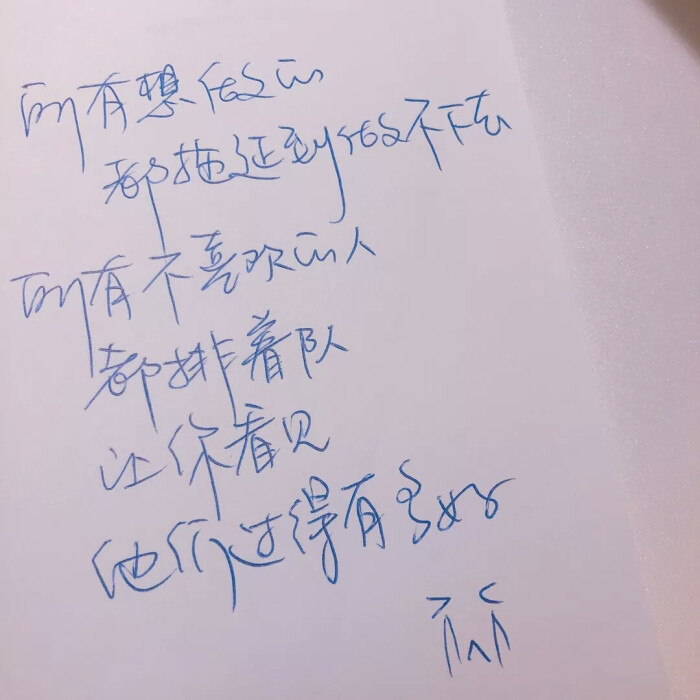 所有想做的
都拖延到做不下去
所有不喜欢的人
都排着队
让你看见
他们过得有多好